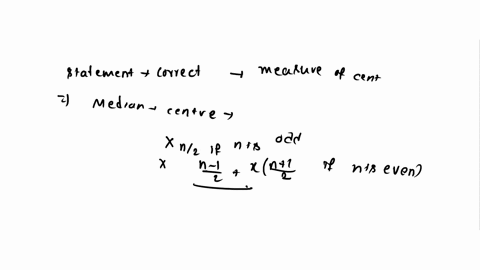 Statement → correct → measure of cent
=) Median → centre →
X n/2 if n→is odd
X n-1/2 + X(n+1/2 if n→is even)